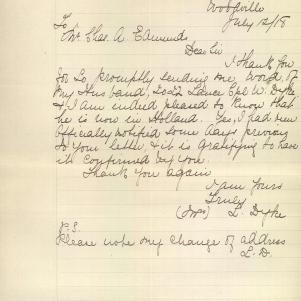 Woodville
July 12/18
To
Mr Chas. A Edmunds,
Dear Sir
I thank you
for so promptly sending me word of
my Husband, Lance Cpl W. Dyke,
& I am indeed pleased to know that
he is now in Holland. Yes, I had been
officially notified some days previous
to your letter, & it is gratifying to have
it confirmed by you.
Thank you again
I am Yours
Truly
(Mrs) L. Dyke
P.S.
Please note my change of address
L.D.